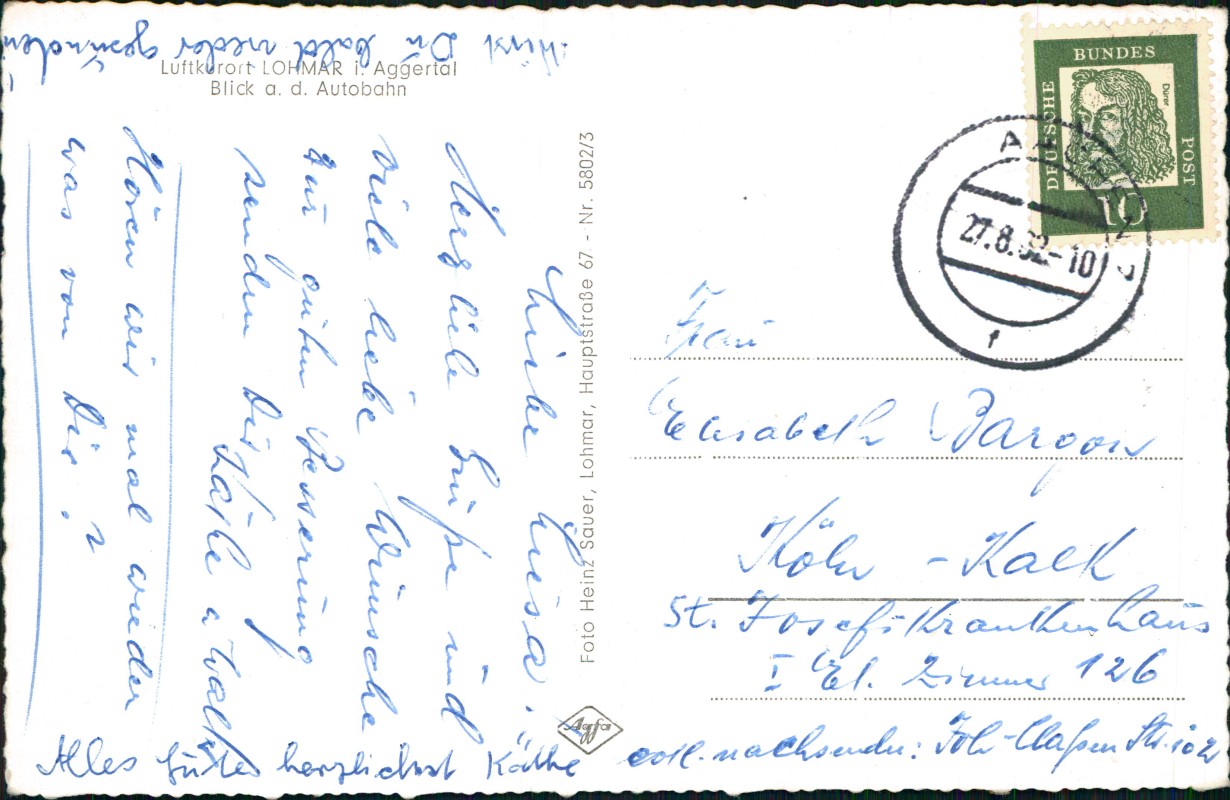 Luftkurort LOHMAR i. Aggertal
Blick a. d. Autobahn
Liebe Lisa.
Herzliche Grüße und
viele liebe Wünsche
zur guten Besserung
senden Dir
Käthe u Walter
Hören wir mal wieder
was von Dir?
wirst Du bald wieder gesund
Alles Gute herzlichst Käthe
Foto Heinz Sauer, Lohmar, Hauptstraße 67 - Nr. 5802/3
Agfa
DEUTSCHE BUNDES POST
Dürer
10
AACHEN
27.8.62-10
f
Frau
Elisabeth
Köln - Kalk
St. Josefskrankenhaus
I Et. Zimmer 126
evtl. nachsenden: Joh-Claßen Str.